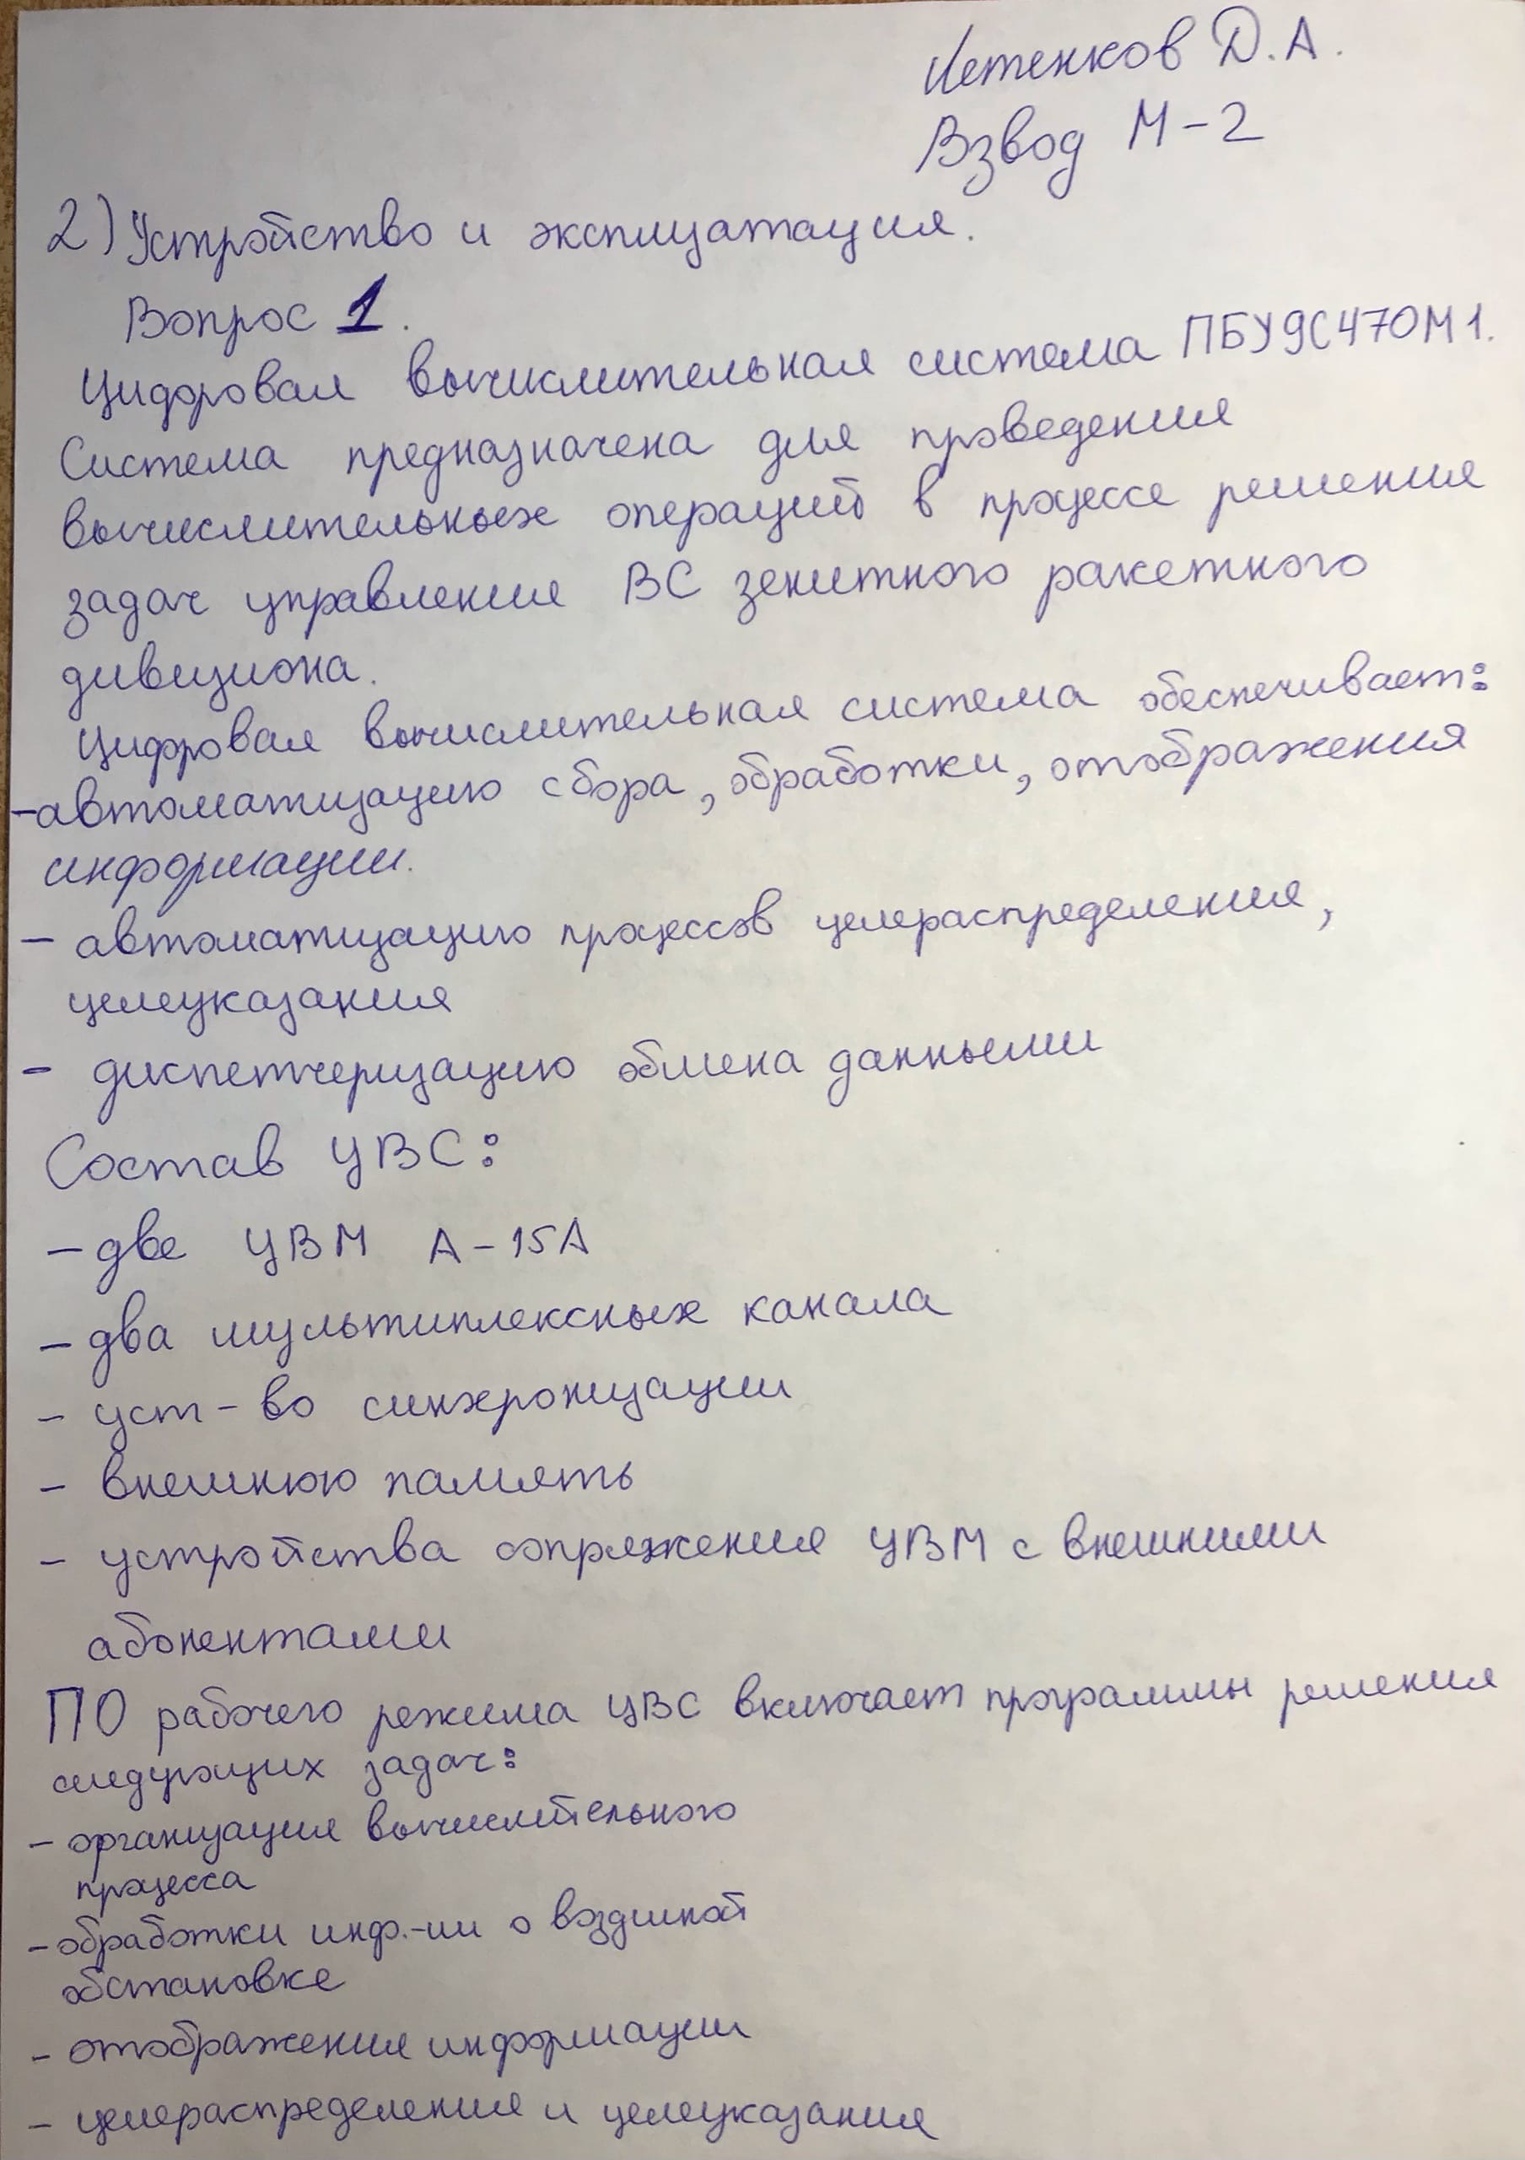 Кетенков Д.А.
Взвод М-2
2) Устройство и эксплуатация.
Вопрос 1.
Цифровая вычислительная система ПБУ 9С470М1.
Система предназначена для проведения
вычислительных операций в процессе решения
задач управления ВС зенитного ракетного
дивизиона.
Цифровая вычислительная система обеспечивает:
-автоматизацию сбора, обработки, отображения
информации.
- автоматизацию процессов целераспределения,
целеуказания
- диспетчеризацию обмена данными
Состав ЦВС:
- две ЦВМ А-15А
- два мультиплексных канала
- уст-во синхронизации
- внешнюю память
- устройства сопряжения ЦВМ с внешними
абонентами
ПО рабочего режима ЦВС включает программы решения
следующих задач:
- организация вычислительного
процесса
- обработки инф.-ии о воздушной
обстановке
- отображения информации
- целераспределения и целеуказания